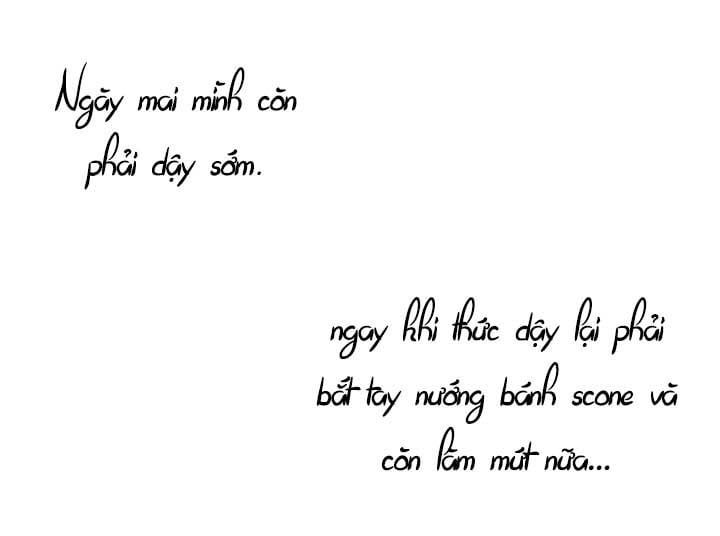 Ngày mai mình còn
phải dậy sớm.
ngay khi thức dậy lại phải
bắt tay nướng bánh scone và
còn làm mứt nữa...